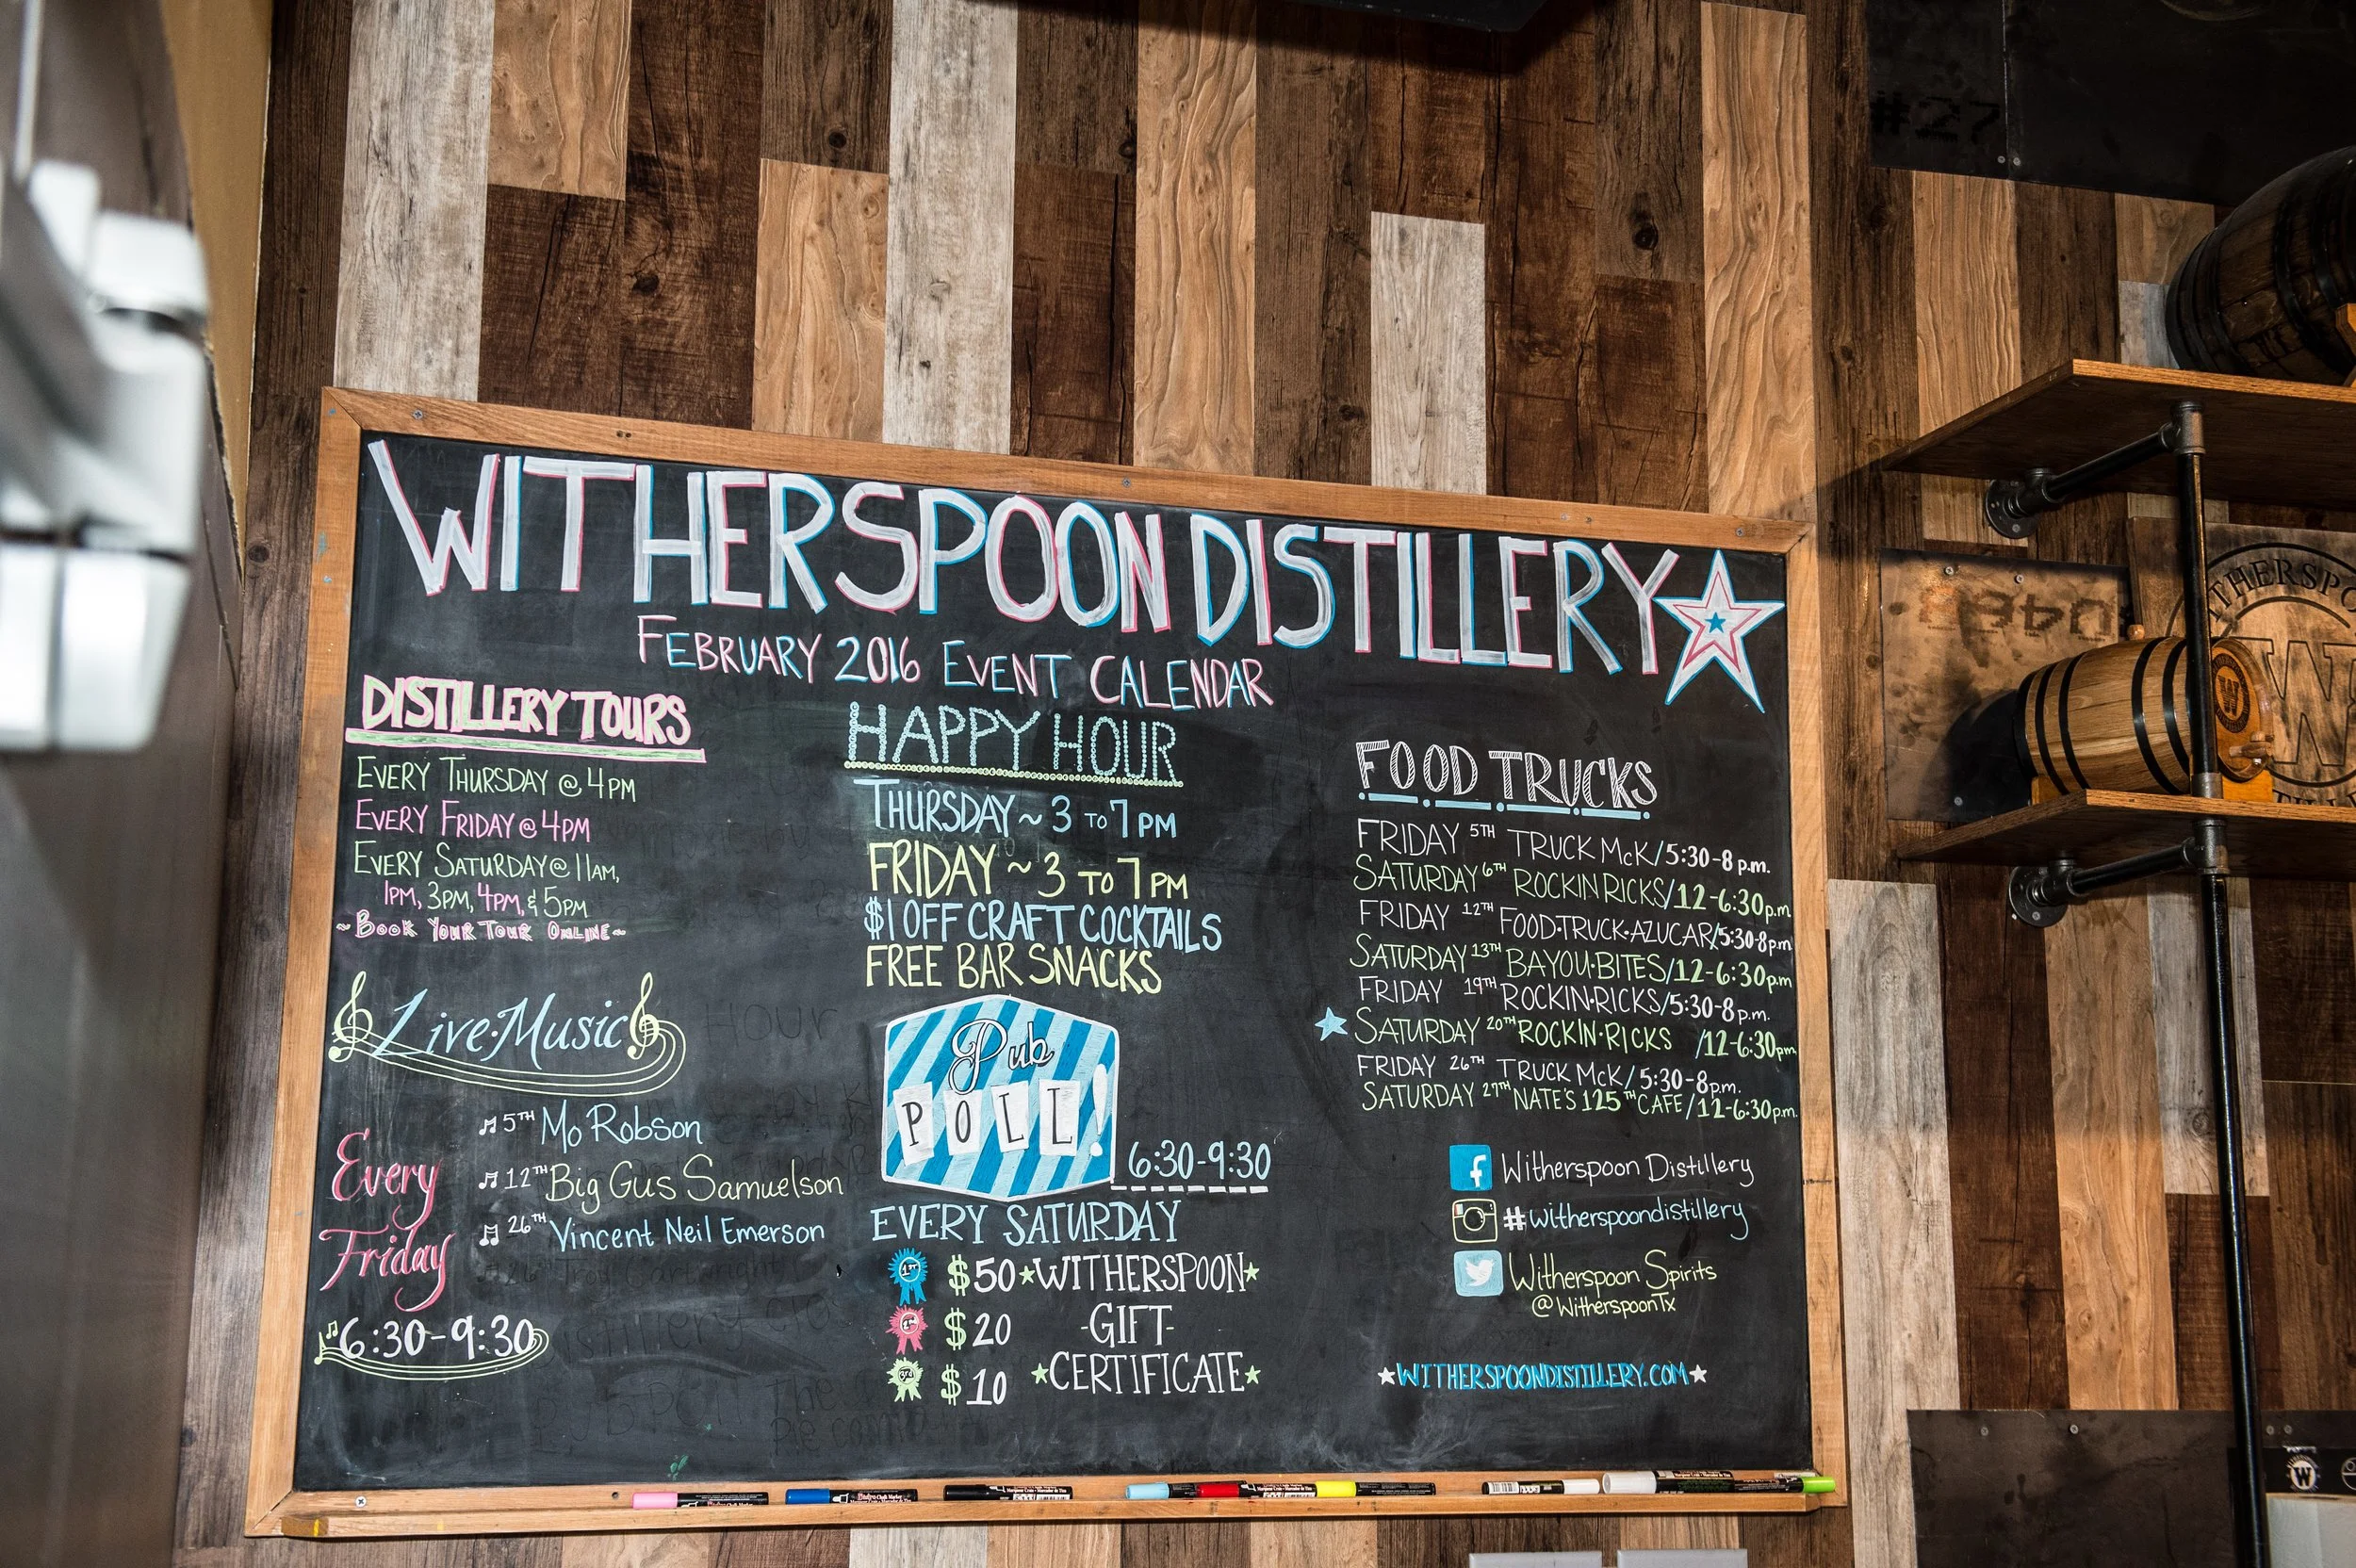 WITHERSPOON DISTILLERY
FEBRUARY 2016 EVENT CALENDAR
DISTILLERY TOURS
EVERY THURSDAY @ 4PM
EVERY FRIDAY @ 4PM
EVERY SATURDAY @ 11AM,
1PM, 3PM, 4PM, & 5PM
~BOOK YOUR TOUR ONLINE~
Live·Music
Every
Friday
6:30-9:30
5TH Mo Robson
12TH Big Gus Samuelson
26TH Vincent Neil Emerson
HAPPY HOUR
THURSDAY ~ 3 TO 7 PM
FRIDAY ~ 3 TO 7 PM
$1 OFF CRAFT COCKTAILS
FREE BAR SNACKS
Pub
POLL!
6:30-9:30
EVERY SATURDAY
1ST $50 WITHERSPOON
$20 -GIFT-
3rd $10 CERTIFICATE
FOOD TRUCKS
FRIDAY 5TH TRUCK McK/5:30-8p.m.
SATURDAY 6TH ROCKIN RICKS/12-6:30p.m
FRIDAY 12TH FOOD·TRUCK·AZUCAR/5:30-8pm
SATURDAY 13TH BAYOU·BITES/12-6:30pm
FRIDAY 19TH ROCKIN·RICKS/5:30-8p.m.
SATURDAY 20TH ROCKIN·RICKS /12-6:30pm
FRIDAY 26TH TRUCK McK/5:30-8p.m.
SATURDAY 27TH NATE'S 125TH CAFE/12-6:30p.m.
f Witherspoon Distillery
#witherspoondistillery
Witherspoon Spirits
@WitherspoonTx
WITHERSPOONDISTILLERY.COM
#27
W
W
W